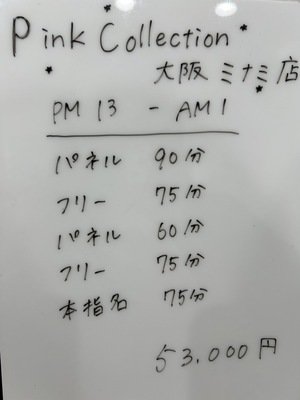 Pink Collection
大阪ミナミ店
PM 13 - AM 1
パネル 90分
フリー 75分
パネル 60分
フリー 75分
本指名 75分
53.000円